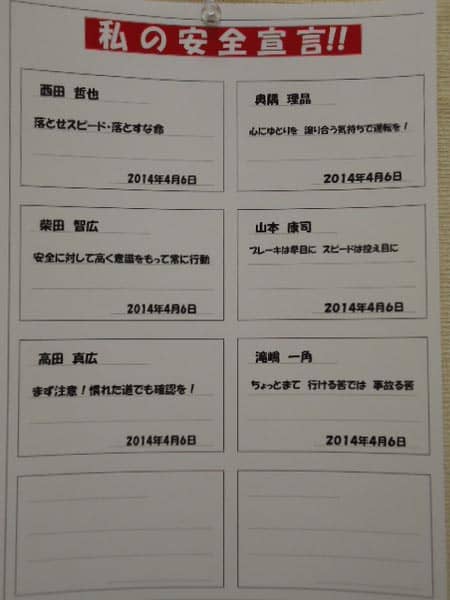 私の安全宣言!!
西田 哲也
落とせスピード・落とすな命
2014年4月6日
奥隅 理晶
心にゆとりを 譲り合う気持ちで運転を！
2014年4月6日
柴田 智広
安全に対して高く意識をもって常に行動
2014年4月6日
山本 康司
ブレーキは早目に スピードは控え目に
2014年4月6日
高田 真広
まず注意！慣れた道でも確認を！
2014年4月6日
滝嶋 一角
ちょっとまて 行ける筈では 事故る筈
2014年4月6日